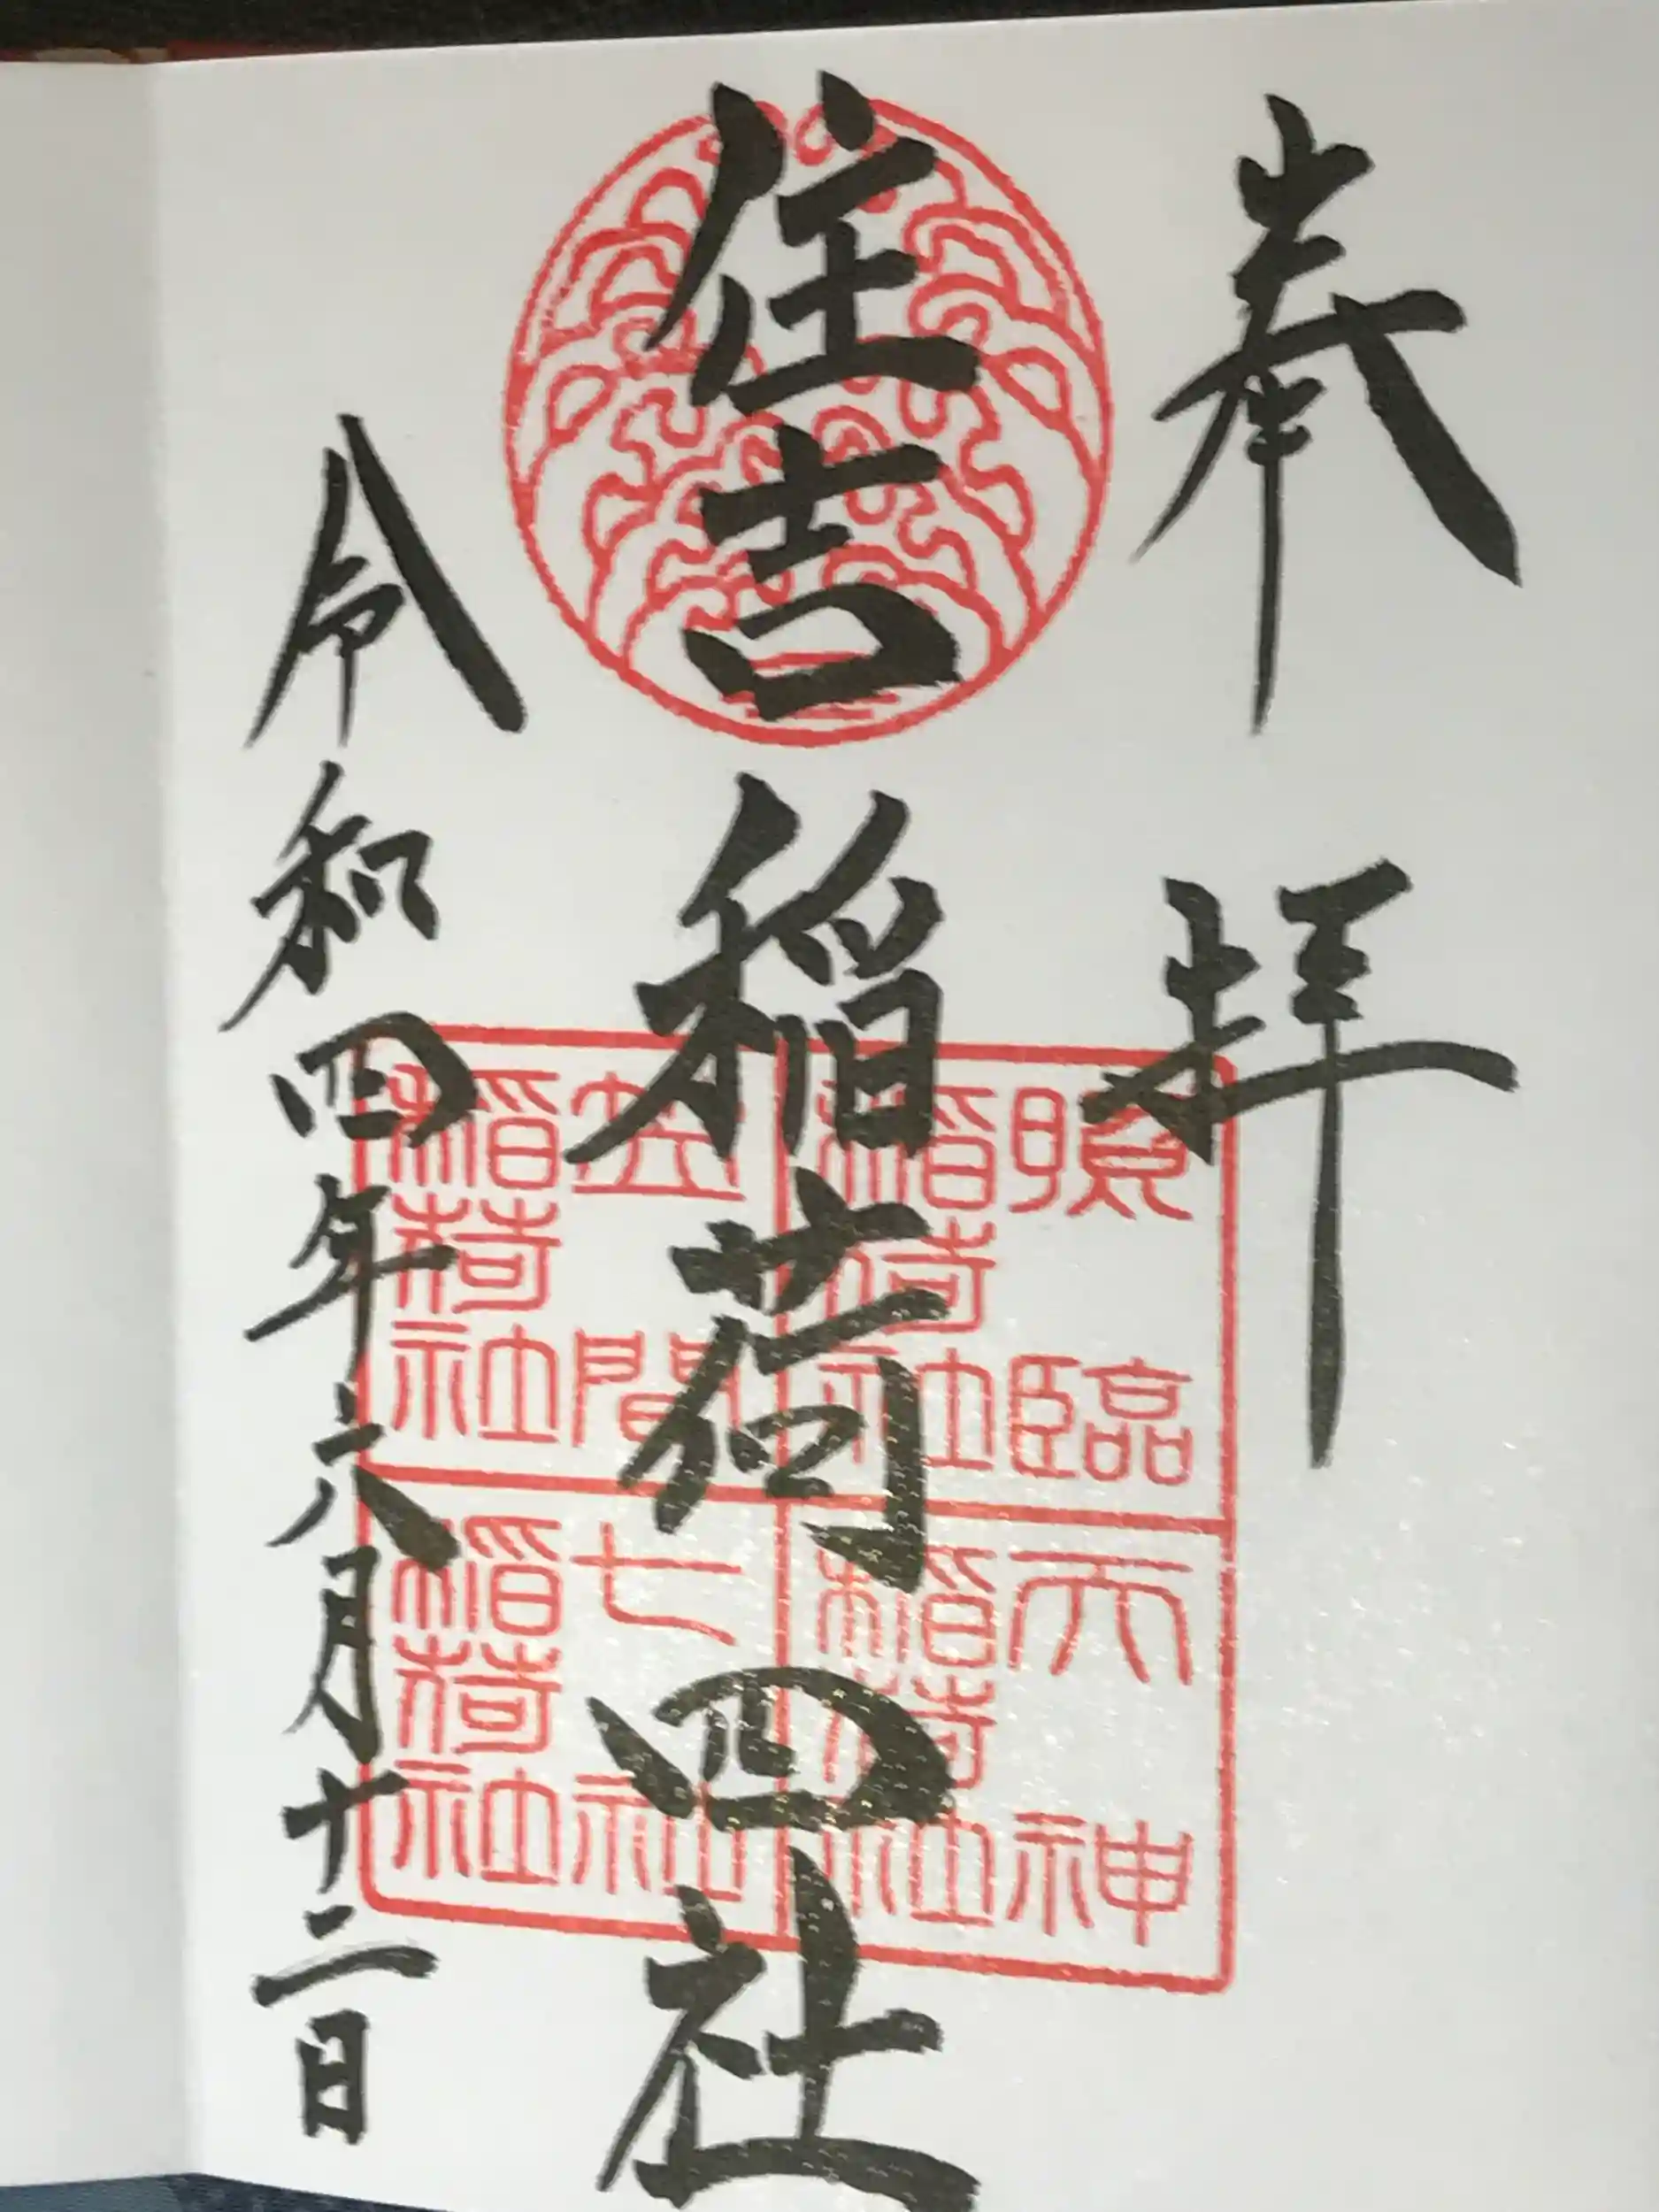 奉拝
住吉稲荷四社
令和四年六月十二日
臨
稲荷社
笠間
稲荷社
天神
稲荷社
七社
稲荷社